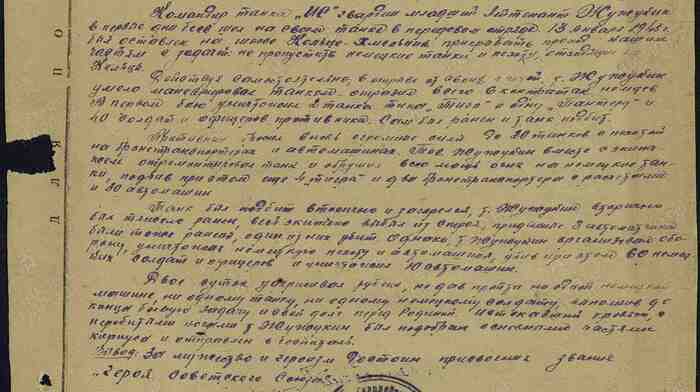 Командир танка „ИС" гвардии младший лейтенант Жужукин
в первые дни боев шел на своем танке в передовом отряде. 13 января 1945 г.
был оставлен на шоссе Кельце-Хмельник прикрывать
частям с задачей не пропустить немецкие танки и пехоту, отходящие
Кельце.
Действуя самостоятельно, в отрыве от своих частей, т. Жужукин
умело маневрировал танком отразил всего 6 контратак немцев.
В первом бою уничтожил 2 танка типа „тигр" и одну „пантеру" и
40 солдат и офицеров противника. Сам был ранен и танк подбит.
Противник вновь силы до 20 танков с пехотой
на бронетранспортерах и автомашинах. Тов. Жужукин вместе с экипа-
жем отремонтировал танк и обрушил всю мощь огня на немецкие тан-
ки, подбив при этом еще 4 „тигра" и два бронетранспортера с расчетами
и 30 автомашин.
Танк был подбит вторично и загорелся, т. Жужукин вторично
был тяжело ранен, весь экипаж выбыл из строя, приданные 3 автоматчика
были тоже ранены, один из них убит. Однако, т. Жужукин организовал обо-
рону, уничтожая немецкую пехоту и автомашины, убив при этом 60 немец-
ких солдат и офицеров и уничтожил 10 автомашин.
Двое суток удерживал рубеж, не дав пройти ни одной немецкой
машине, ни одному танку, ни одному немецкому солдату, выполнив до
конца боевую задачу и свой долг перед Родиной. Истекавший кровью, с
перебитыми ногами т. Жужукин был подобран основными частями
корпуса и отправлен в госпиталь.
Вывод: За мужество и героизм достоин присвоения звания
„Героя Советского Союза"